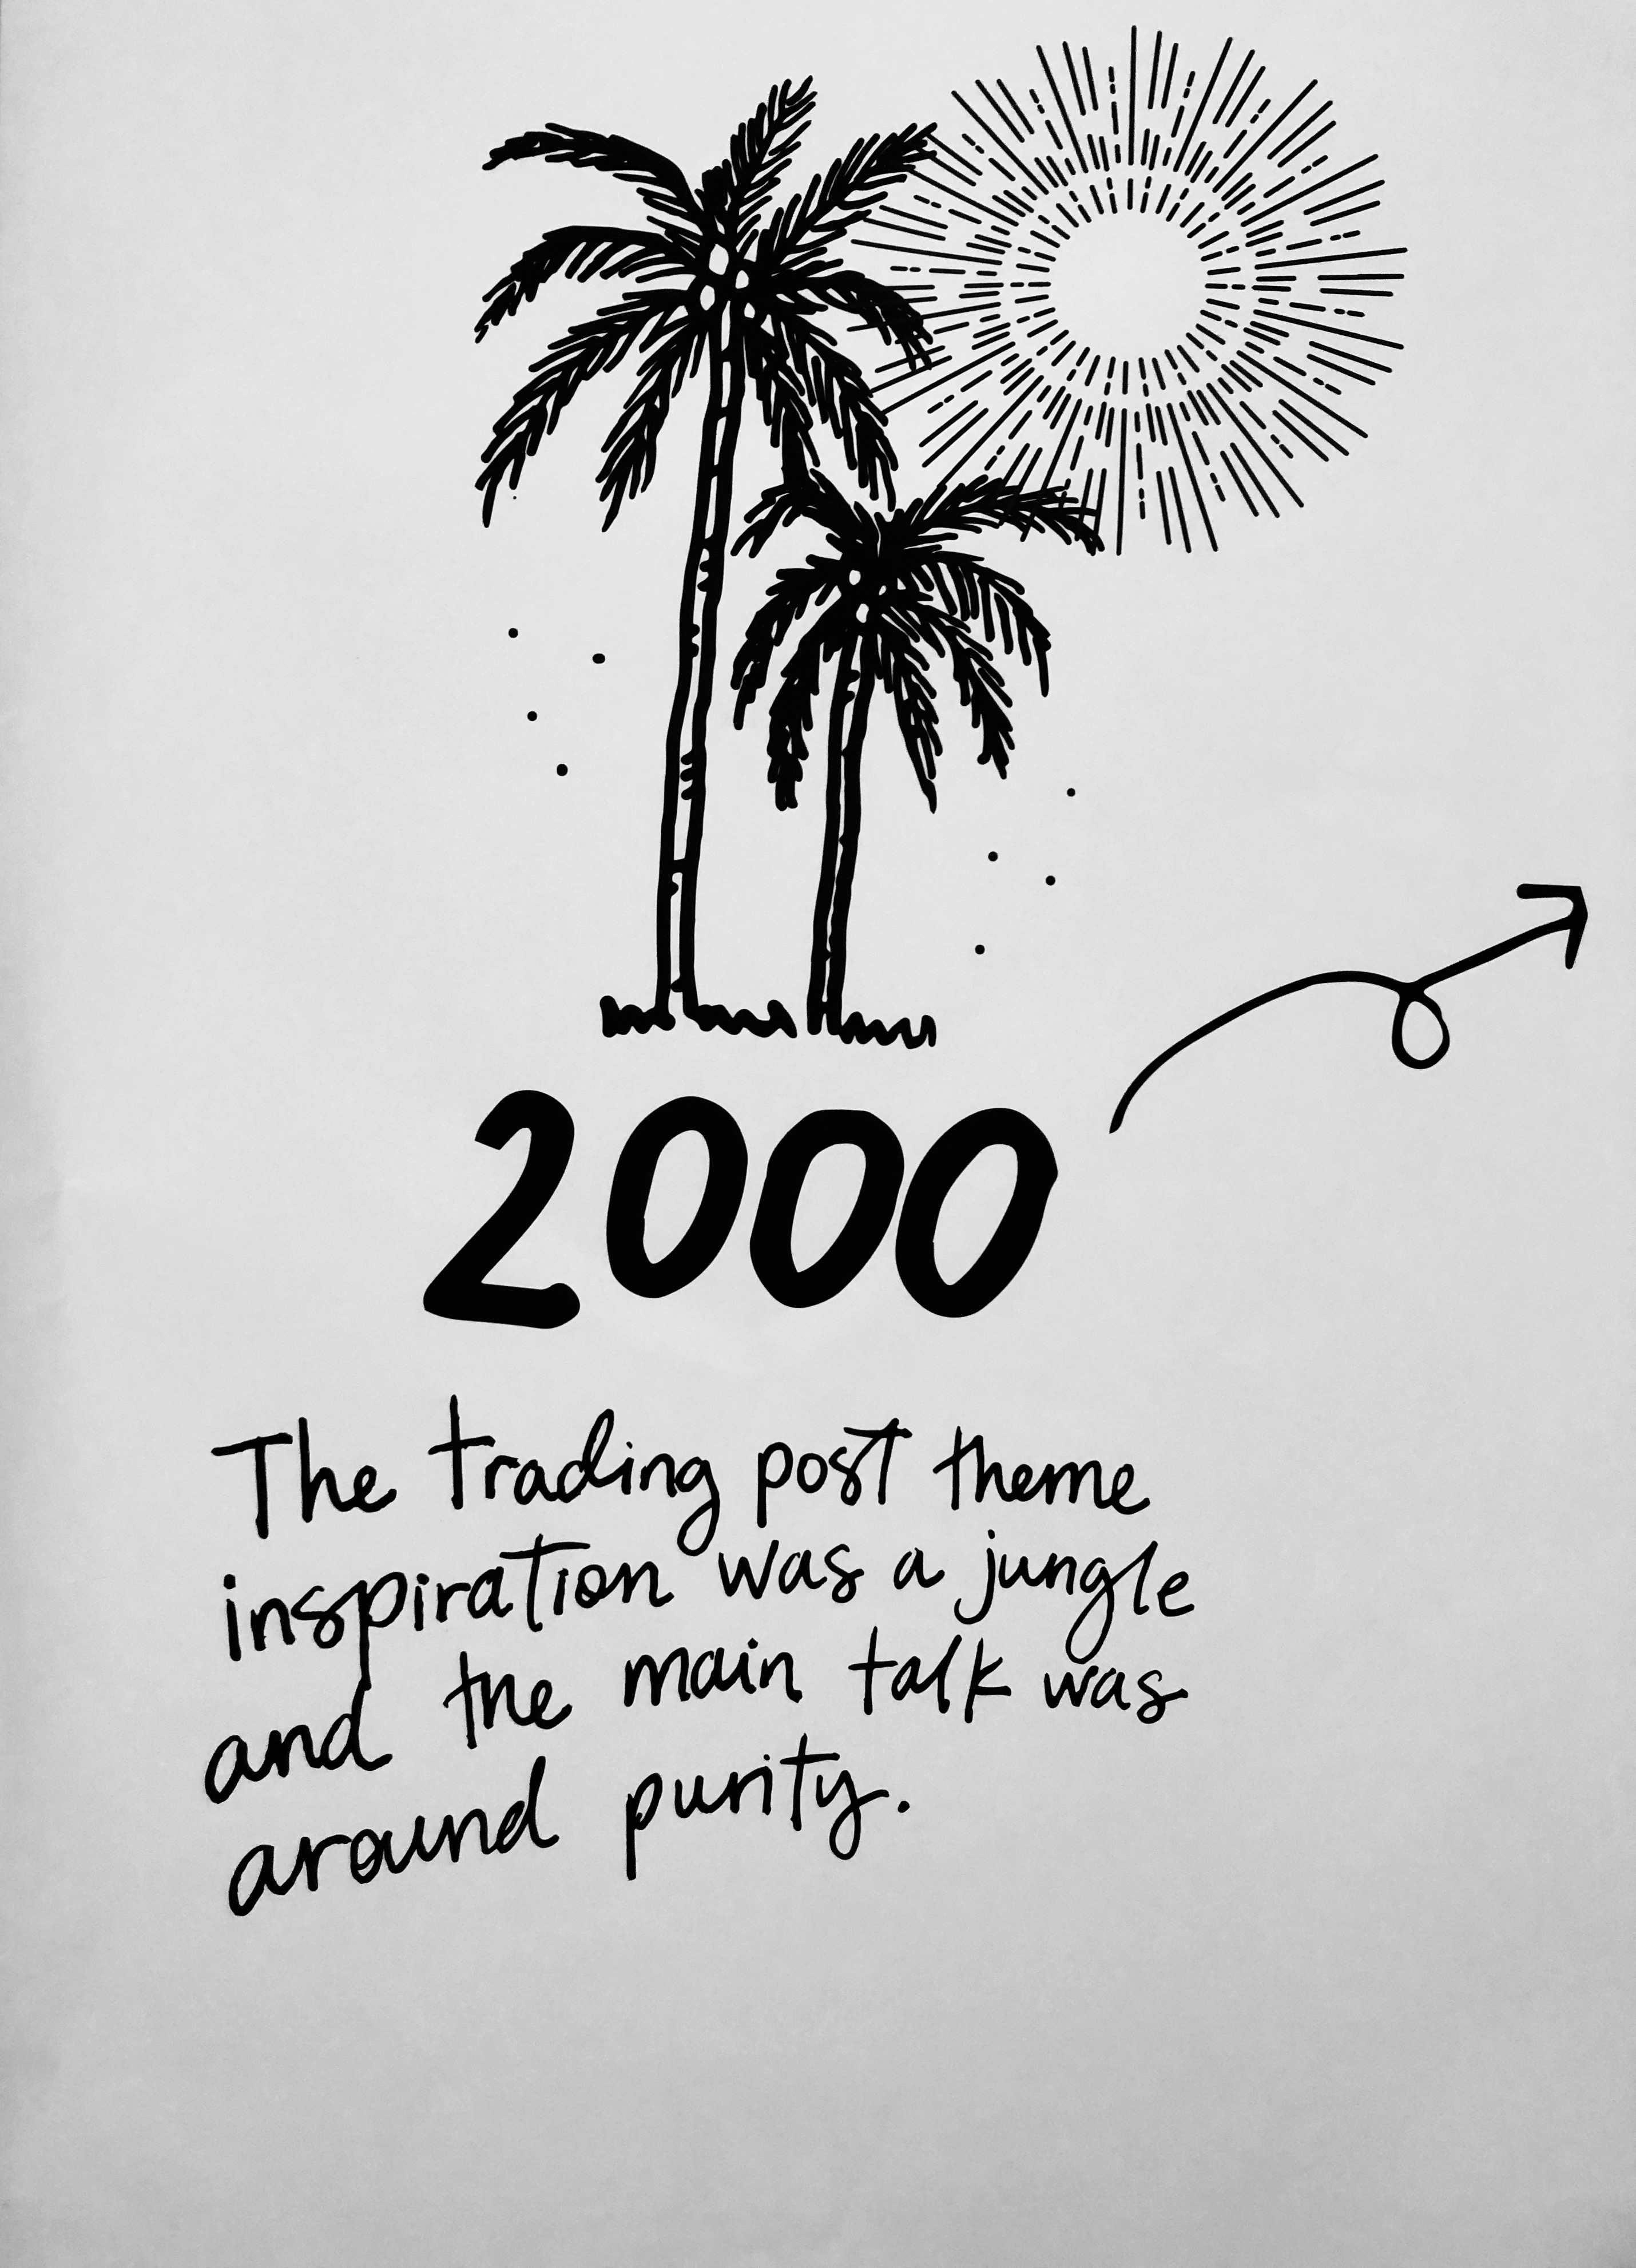 2000
The trading post theme
inspiration was a jungle
and the main talk was
around purity.